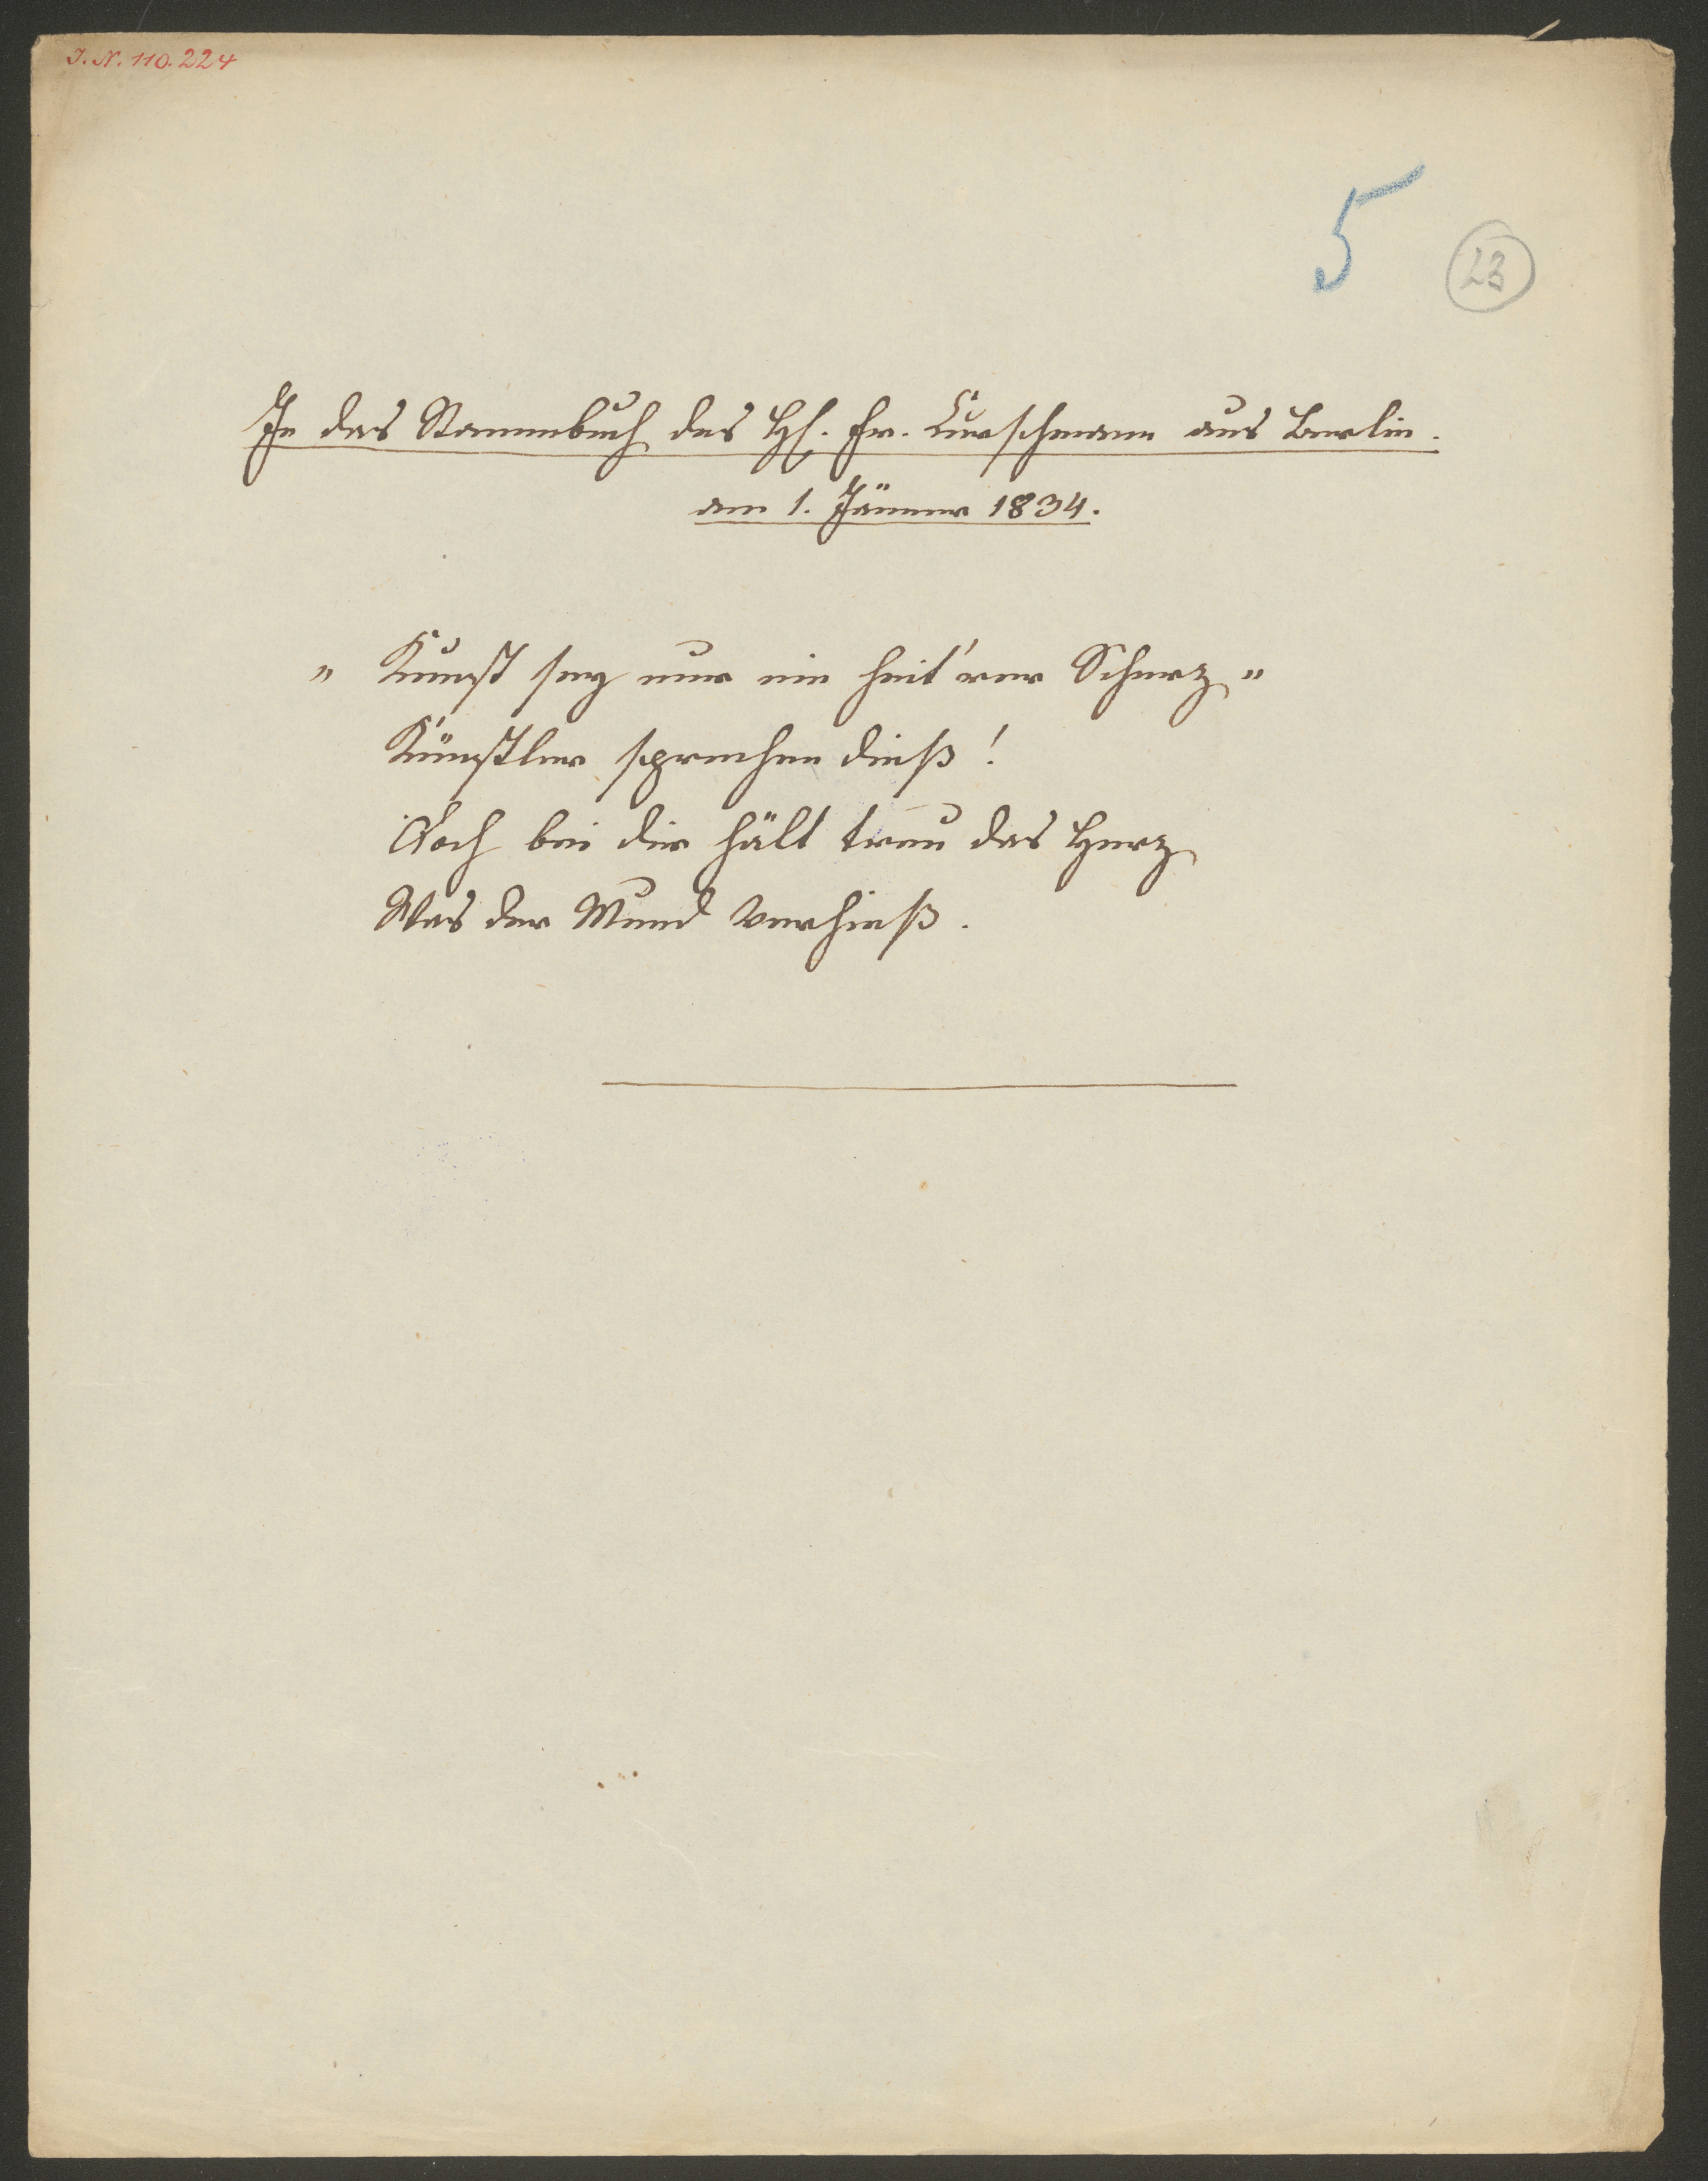 I. N. 110.224
5
23
In das Stammbuch des H. Fr. Curschmann aus Berlin.
am 1. Jänner 1834.
" Kunst sey nur ein heit'rer Scherz "
Künstler sprechen dieß!
Doch bei dir hält treu das Herz
Was der Mund verhieß.